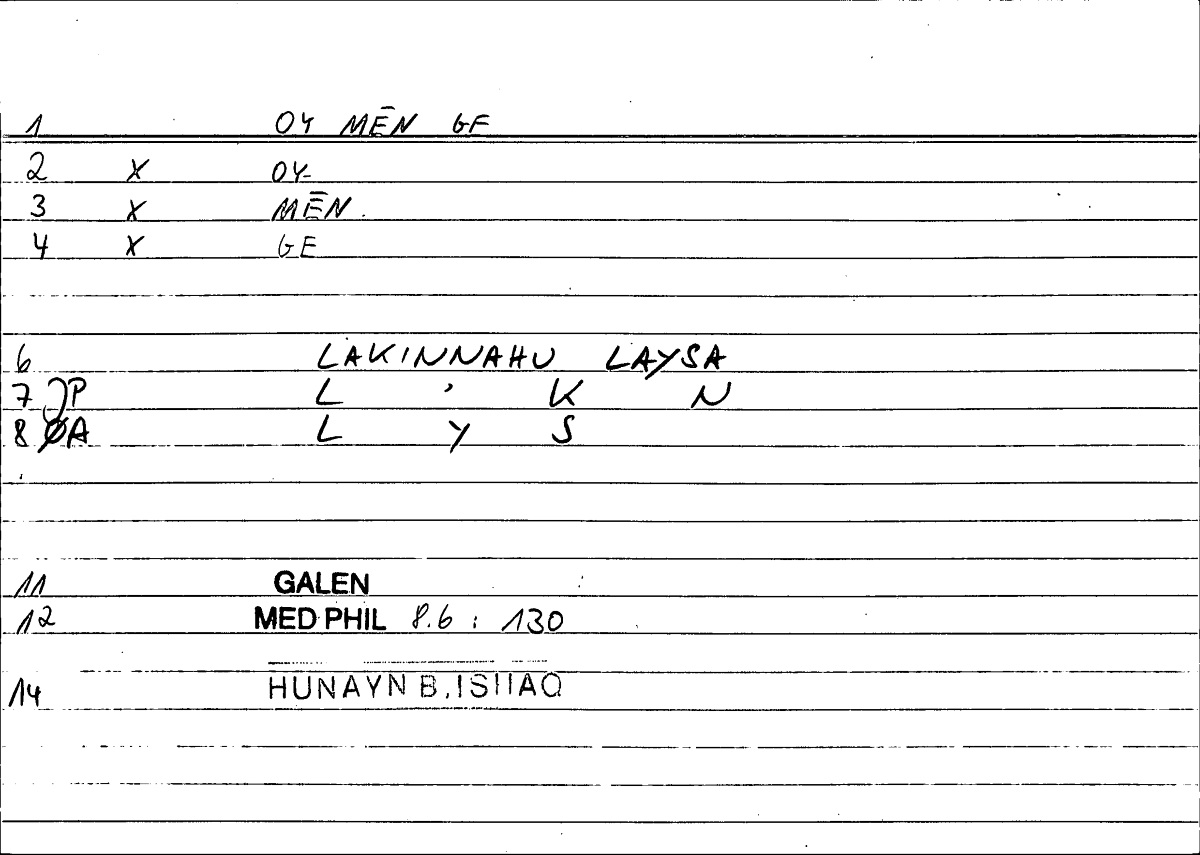 1 OY MĒN GE
2 X OY
3 X MĒN.
4 X GE
6 LAKINNAHU LAYSA
7 P L ' K N
8 A L Y S
11 GALEN
12 MED PHIL 8.6 : 130
14 HUNAYN B. ISHAQ